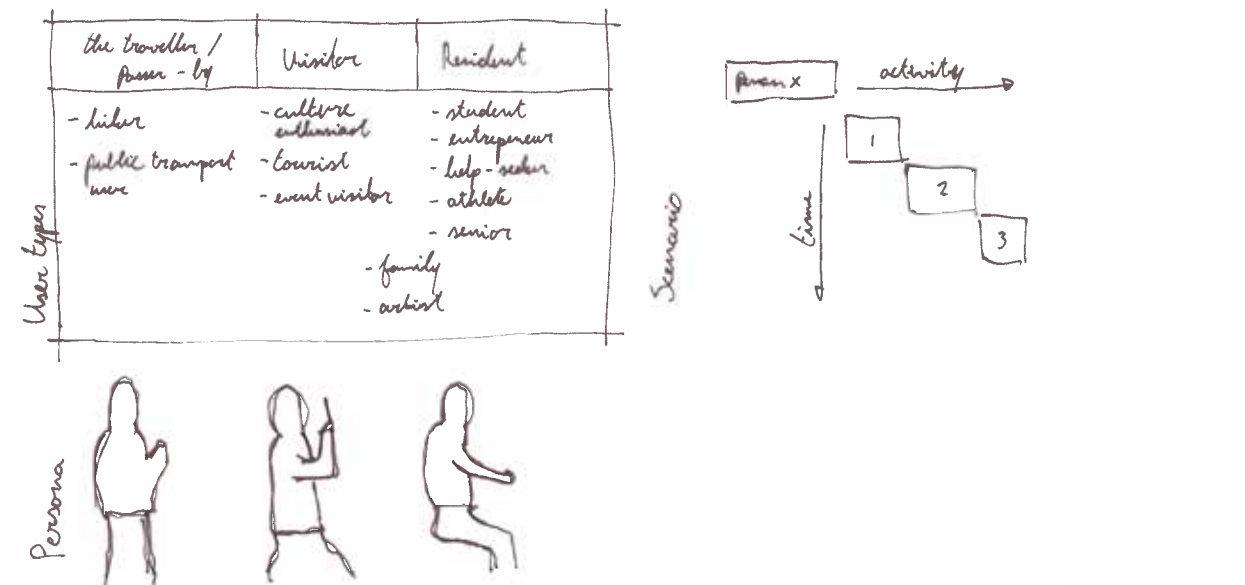 the traveller /
Passer - by
Visitor
Resident
- hiker
- public transport
user
- culture
enthusiast
- tourist
- event visitor
- student
- entrepeneur
- help - seeker
- athlete
- senior
- family
- artist
User types
Person x
activity
time
1
2
3
Scenario
Persona